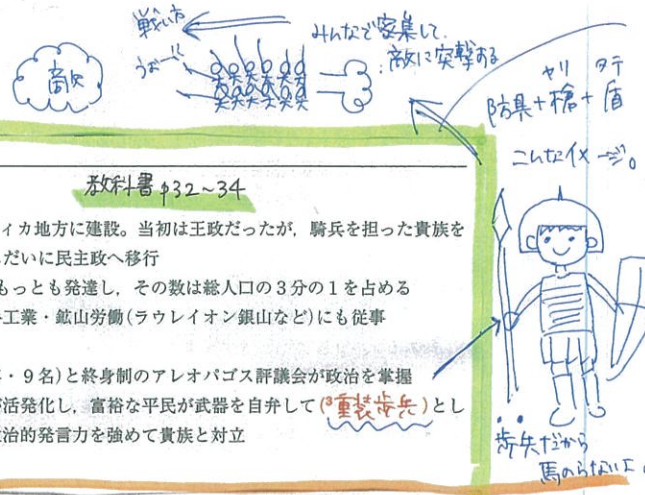 戦い方
うおー!!
敵
みんなで密集して、
敵に突撃する
ヤリ タテ
防具+槍+盾
こんなイメージ。
教科書p32~34
ィカ地方に建設。当初は王政だったが，騎兵を担った貴族を
だいに民主政へ移行
もっとも発達し，その数は総人口の3分の1を占める
工業・鉱山労働(ラウレイオン銀山など)にも従事
・9名)と終身制のアレオパゴス評議会が政治を掌握
が活発化し，富裕な平民が武器を自弁して(³重装歩兵)とし
治的発言力を強めて貴族と対立
歩兵だから
馬のらないよ